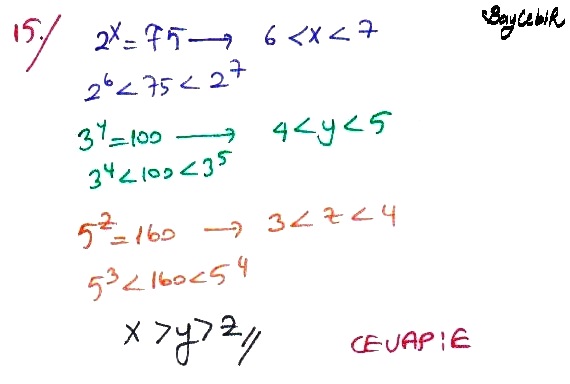 15./ 2^x = 75 → 6 < x < 7
BayCebiR
2^6 < 75 < 2^7
3^y = 100 → 4 < y < 5
3^4 < 100 < 3^5
5^z = 160 → 3 < z < 4
5^3 < 160 < 5^4
x > y > z //
CEVAP: E